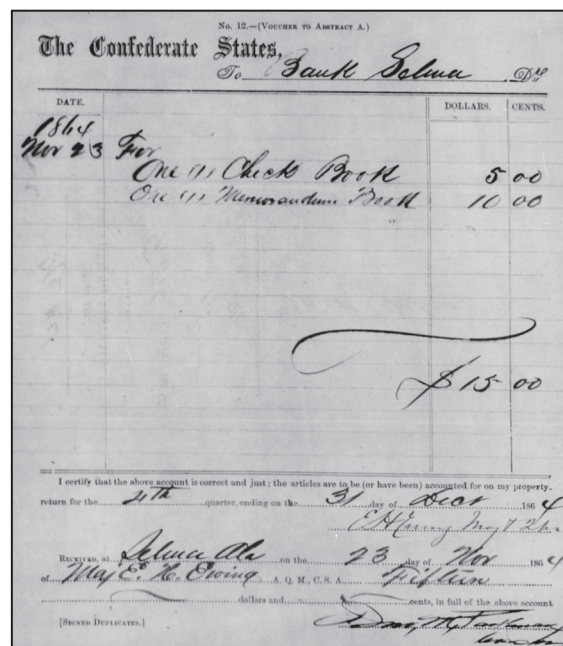 No. 12.—(Voucher to Abstract A.)
The Confederate States,
To Bank Selma Dr
DATE. DOLLARS. CENTS.
1864
Nov 23 For
One (1) Check Book 5 00
One (1) Memorandum Book 10 00
$ 15 00
I certify that the above account is correct and just; the articles are to be (or have been) accounted for on my property
return for the 4th quarter, ending on the 31 day of Decr 1864
E H Ewing Maj
Received, at Selma Ala on the 23 day of Nov 1864
of Maj E. H. Ewing A. Q. M., C. S. A. Fifteen
dollars and cents, in full of the above account
[Signed Duplicates.]